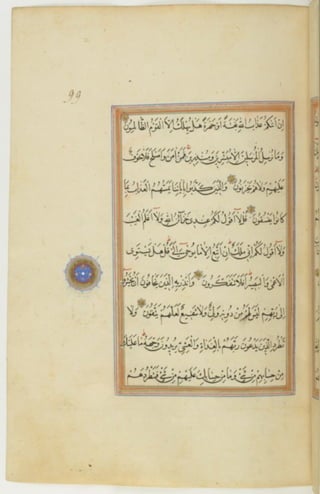 99
إن أتاكم عذاب الله بغتة أو جهرة هل يهلك إلا القوم الظالمون
وما نرسل المرسلين إلا مبشرين ومنذرين فمن آمن وأصلح فلا خوف
عليهم ولا هم يحزنون والذين كذبوا بآياتنا يمسهم العذاب بما
كانوا يفسقون قل لا أقول لكم عندي خزائن الله ولا أعلم الغيب
ولا أقول لكم إني ملك إن أتبع إلا ما يوحى إلي قل هل يستوى
الأعمى والبصير أفلا تتفكرون وأنذر به الذين يخافون أن يحشروا
إلى ربهم ليس لهم من دونه ولي ولا شفيع لعلهم يتقون ولا
تطرد الذين يدعون ربهم بالغداة والعشي يريدون وجهه ما عليك
من حسابهم من شيء وما من حسابك عليهم من شيء فتطردهم